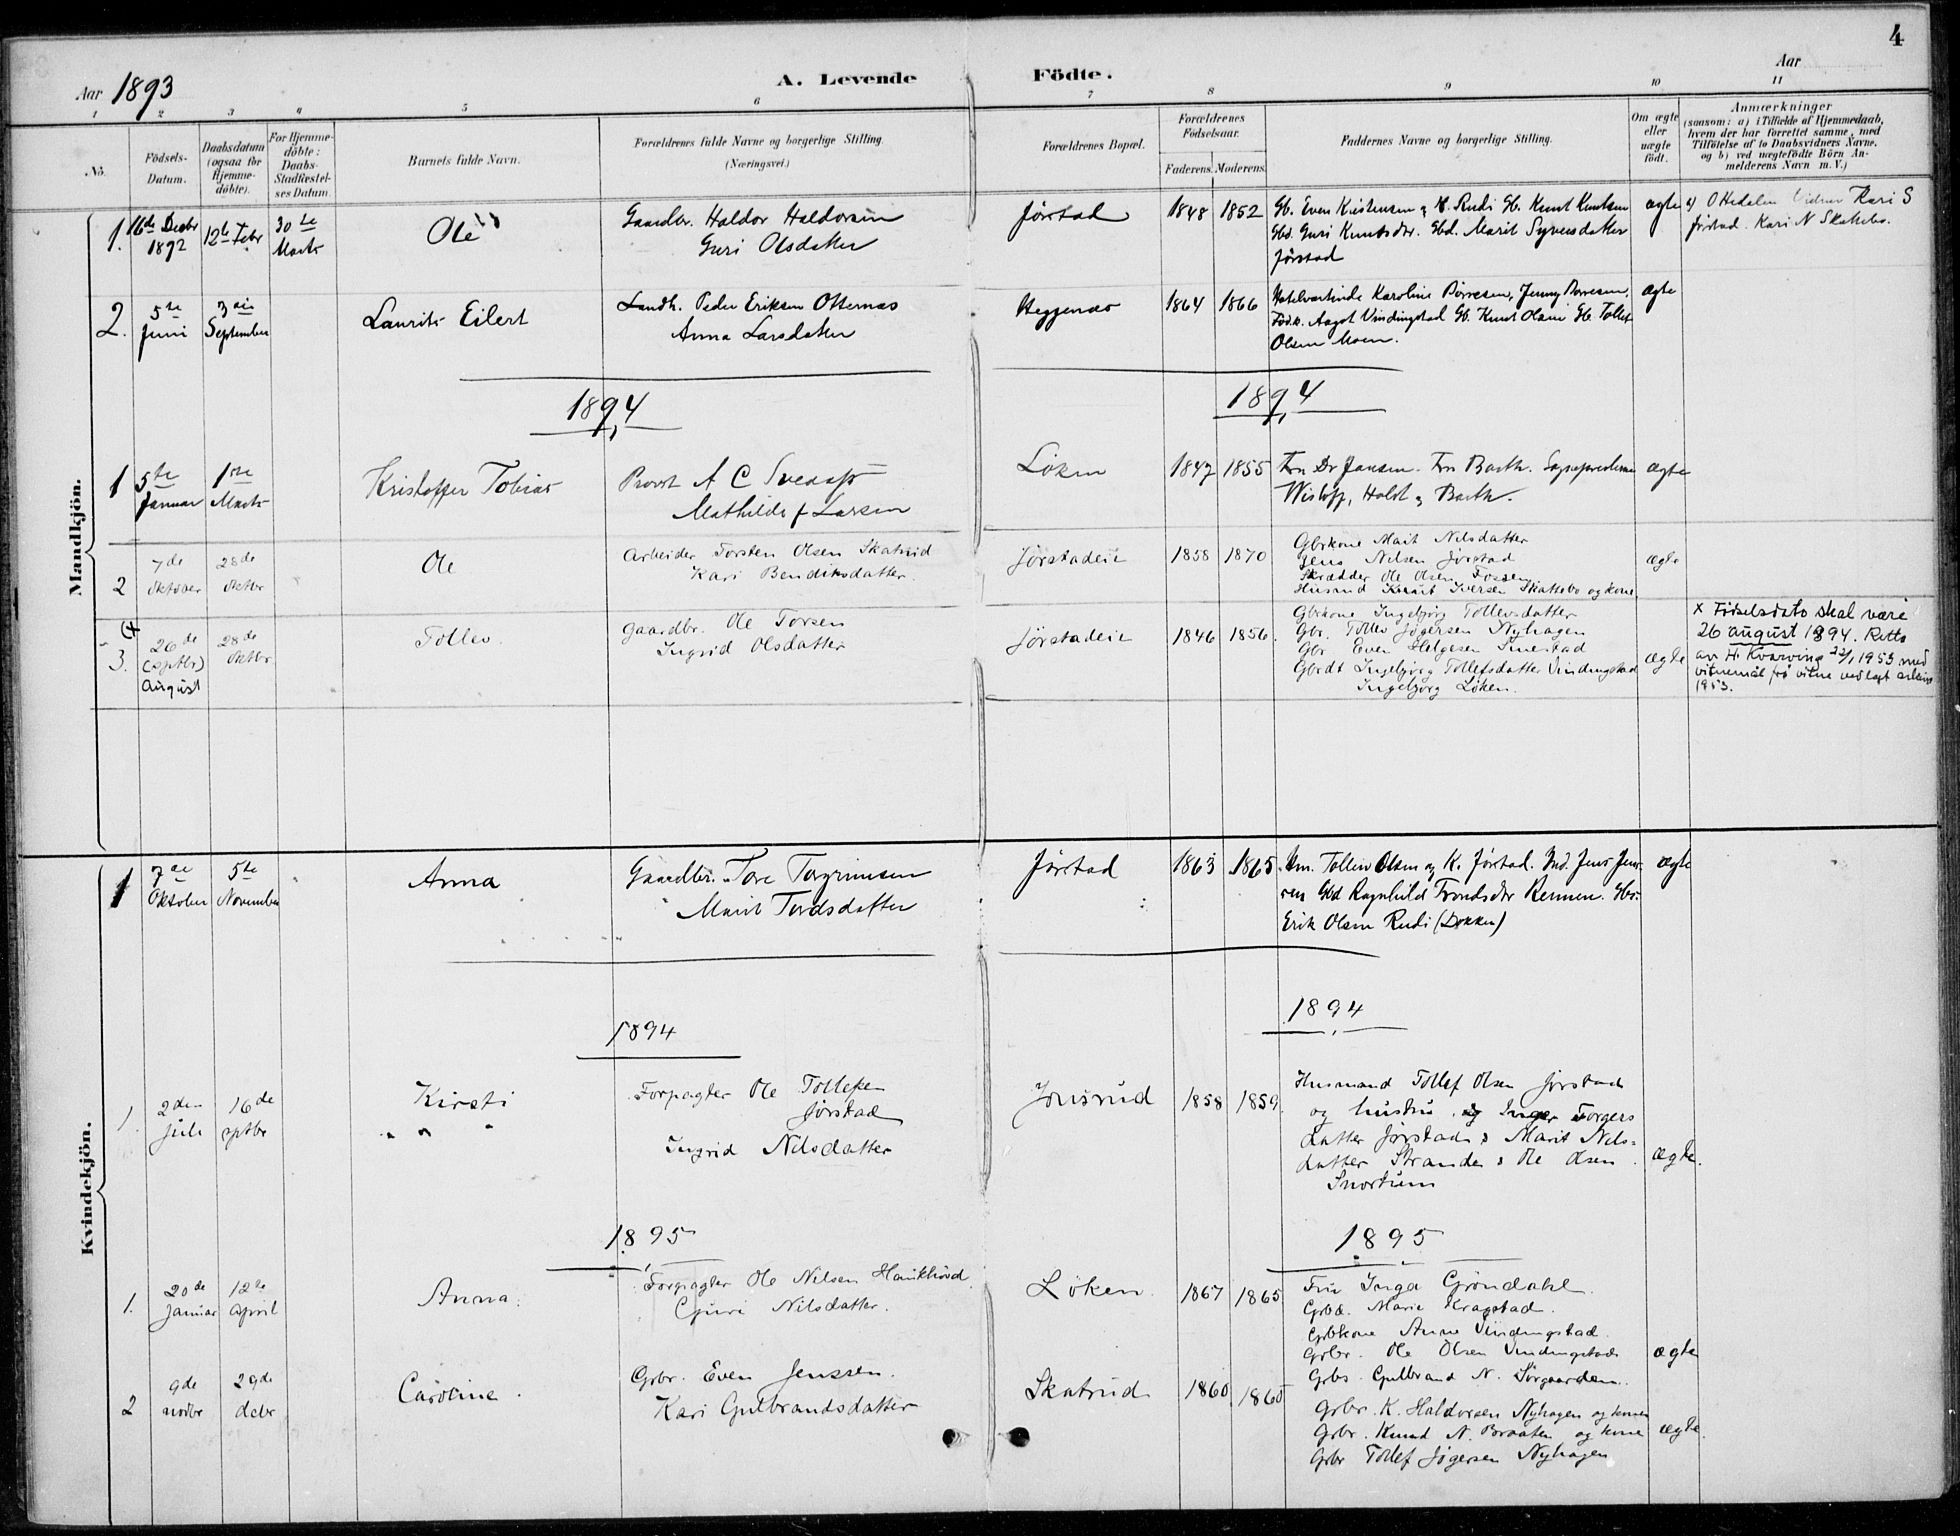 4
Aar 1893
A. Levende Födte.
Aar
1 2 3 4 5 6 7 8 9 10 11
No.
Födsels-
Datum.
Daabsdatum
(ogsaa for
Hjemme-
döbte).
For Hjemme-
döbte:
Daabs-
Stadfæstel-
ses Datum.
Barnets fulde Navn.
Forældrenes fulde Navne og borgerlige Stilling.
(Næringsvei.)
Forældrenes Bopæl.
Forældrenes
Födselsaar.
Faderens. Moderens.
Faddernes Navne og borgerlige Stilling.
Om ægte
eller
uægte
födt.
Anmærkninger
(saasom: a) i Tilfælde af Hjemmedaab,
hvem der har forrettet samme, med
Tilföielse af to Daabsvidners Navne,
og b) ved uægtefödte Börn An-
melderens Navn m. V.)
Mandkjön.
1. 16de Decbr 12te Febr 30te Ole Gaardbr. Haldor Haldorsen Jørstad 1848 1852 Gb. Even Kristensen og K. Rudi Gb. Knut Knutsen ægte
1892 Marts Guri Olsdatter Gbd. Guri Knutsdr. Gbd. Marit Syversdatter
Jørstad
Jørstad. Kari N Skattebo.
2. 5te 3die Laurits Eilert Landh. Peder Eriksen Otternæs Heggenæs 1864 1866 Karoline Børresen, Jenny Børresen, ægte
Juni September Anna Larsdatter Aagot Vindingstad Gb. Knut Olsen Gb. Tollef
Olsen Moen.
1894 1894
1 5te 1ste Kristoffer Tobias Provst A C Løken 1847 1855 Fru Dr Jansen. Fru Barth. ægte
Januar Marts Mathilde f Larsen Wisløff, Holst og Barth.
2 7de 28de Ole Arbeider Torsten Olsen Skatrud Jørstadeie 1858 1870 Gbrkone Marit Nilsdatter ægte
oktober oktbr Kari Bendiksdatter. Jens Nilsen Jørstad
Skrædder Ole Olsen Fossen
Husmd Knut Iversen Skattebo og kone
3. 26de 28de Tollev. Gaardbr. Ole Torsen Jørstadeie 1846 1856. Gbrkone Ingebjørg Tollevsdatter ægte
(septbr) oktbr Ingrid Olsdatter Gbr. Tollev Jøgersen Nyhagen
August Gbr Even Helgesen
Gbrdt Ingebjørg Tollefsdatter Vindingstad
Ingebjørg Løken.
x Fødselsdato skal være
26 august 1894. Retta
av H. Kvarving 22/1 1953 med
vitnemål frå vitne vedlagt arkivet
1953.
Kvindekjön.
1 7de 5te Anna Gaardbr. Tore Torgrimsen Jørstad 1863 1865 Hm. Tollev Olsen og K. Jørstad. Ind. Jens Jens- ægte
Oktober November Marit Tordsdatter sen Gbd Ragnhild Trondsdtr Rennen. Gbr.
Erik Olsen Rudi (Løkken)
1894 1894
1. 2den 16de Kirsti Forpagter Ole Tollefsen Jonsrud 1858 1859. Husmand Tollef Olsen Jørstad
juli sptbr Jørstad og hustru og Inger Torgers
Ingrid Nilsdatter datter Jørstad & Marit Nils-
datter Strande & Ole Olsen ægte.
Snortum
1895 1895
1. 20de 12te Anna. Forpagter Ole Nilsen Haukhovd Løken. 1867 1865 Fru Inga Grøndahl.
Januar April Guri Nilsdatter. Gbd. Marie Kragstad.
Gbkone Anne Vindingstad
Grbr. Ole Olsen Vindingstad ægte
Grbs. Gulbrand N. Sørgaarden.
2 9de 29de Caroline. Grbr. Even Jenssen. Skatrud 1860 1860 Grbr. K. Haldorsen Nyhagen og kone
novbr decbr Kari Gulbrandsdatter Grbr. Knud N. Braaten og kone ægte.
Grbr Tollef Jøgersen Nyhagen